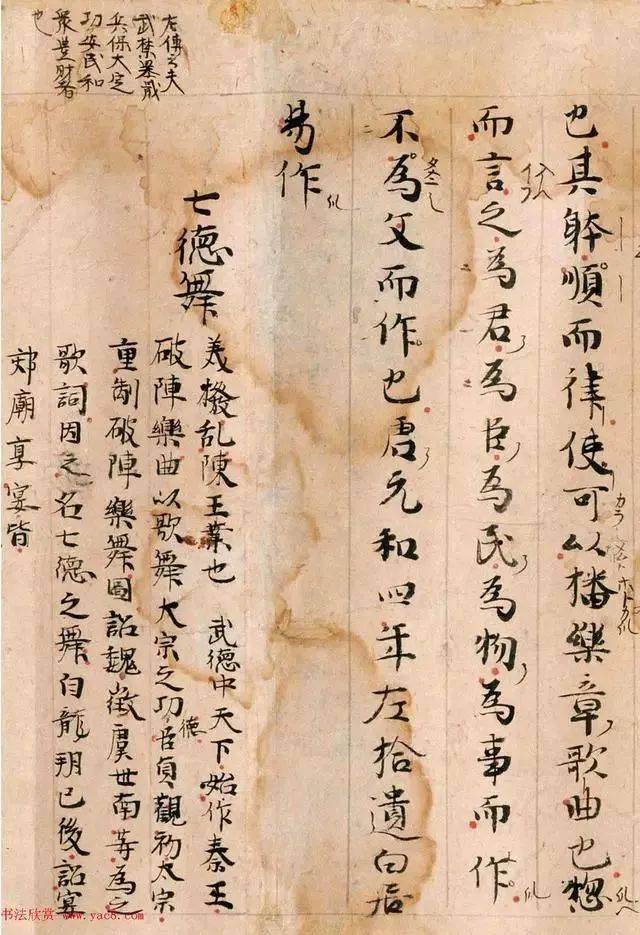 也其躰順而律使可以播樂章歌曲也惣
而言之為君為臣為民為物為事而作
不為文而作也唐元和四年左拾遺白居
易作
左傳云夫
武禁暴戢
兵保大定
功安民和
衆豊財者
也
七德舞
美撥乱陳王業也 武德中天下始作秦王
破陣樂曲以歌舞大宗之功臣貞觀初太宗
德
重制破陣樂舞圖詔魏徵虞世南等為之
歌詞因之名七德之舞自龍朔已後詔宴
郊廟享宴皆
书法欣赏 www.yac8.com